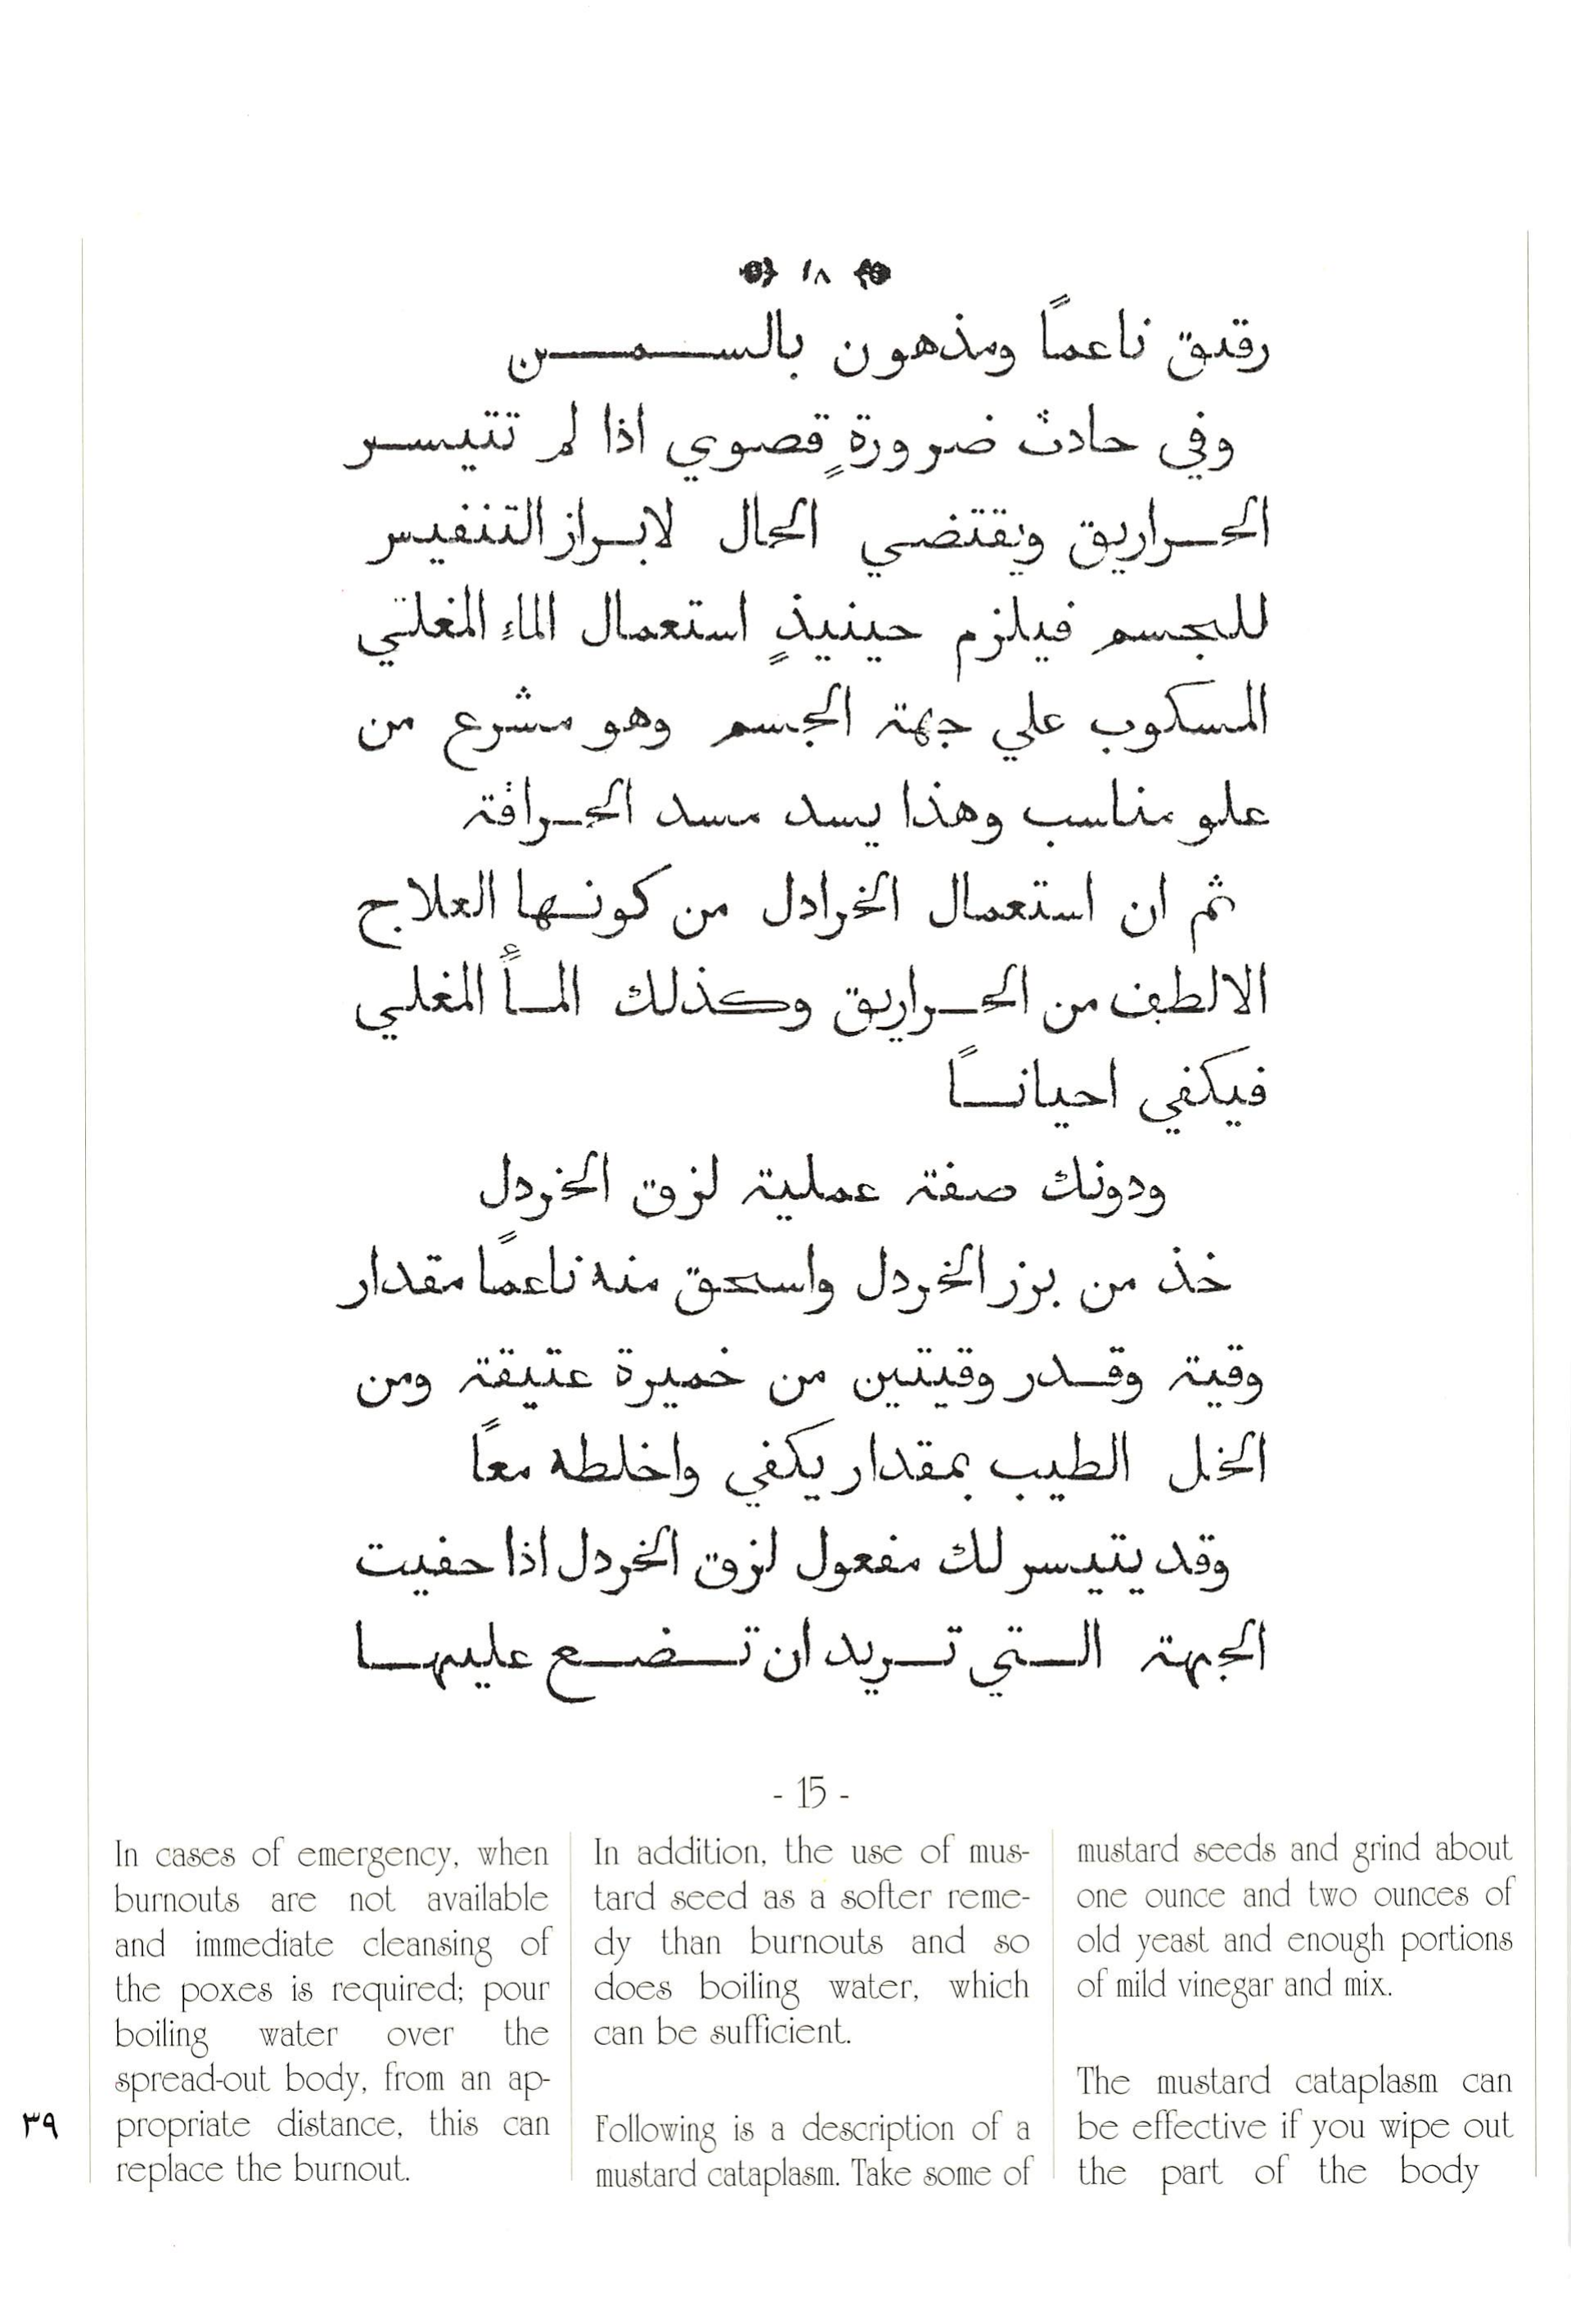 ١٨
رقيق ناعمًا ومذهون بالسمن
وفي حادث ضرورةٍ قصوي اذا لم تتيسر
الحراريق ويقتضي الحال لابراز التنفيس
للجسم فيلزم حينيذٍ استعمال الماء المغلي
المسكوب علي جهة الجسم وهو مشرع من
علو مناسب وهذا يسد مسد الحراقة
ثم ان استعمال الخرادل من كونها العلاج
الالطف من الحراريق وكذلك المأ المغلي
فيكفي احيانًا
ودونك صفة عملية لزق الخردل
خذ من بزر الخردل واسحق منه ناعمًا مقدار
وقية وقدر وقيتين من خميرة عتيقة ومن
الخل الطيب بمقدار يكفي واخلطه معًا
وقد يتيسر لك مفعول لزق الخردل اذا حفيت
الجهة التي تريد ان تضع عليها
- 15 -
In cases of emergency, when
burnouts are not available
and immediate cleansing of
the poxes is required; pour
boiling water over the
spread-out body, from an ap-
propriate distance, this can
replace the burnout.
In addition, the use of mus-
tard seed as a softer reme-
dy than burnouts and so
does boiling water, which
can be sufficient.
Following is a description of a
mustard cataplasm. Take some of
mustard seeds and grind about
one ounce and two ounces of
old yeast and enough portions
of mild vinegar and mix.
The mustard cataplasm can
be effective if you wipe out
the part of the body
٣٩